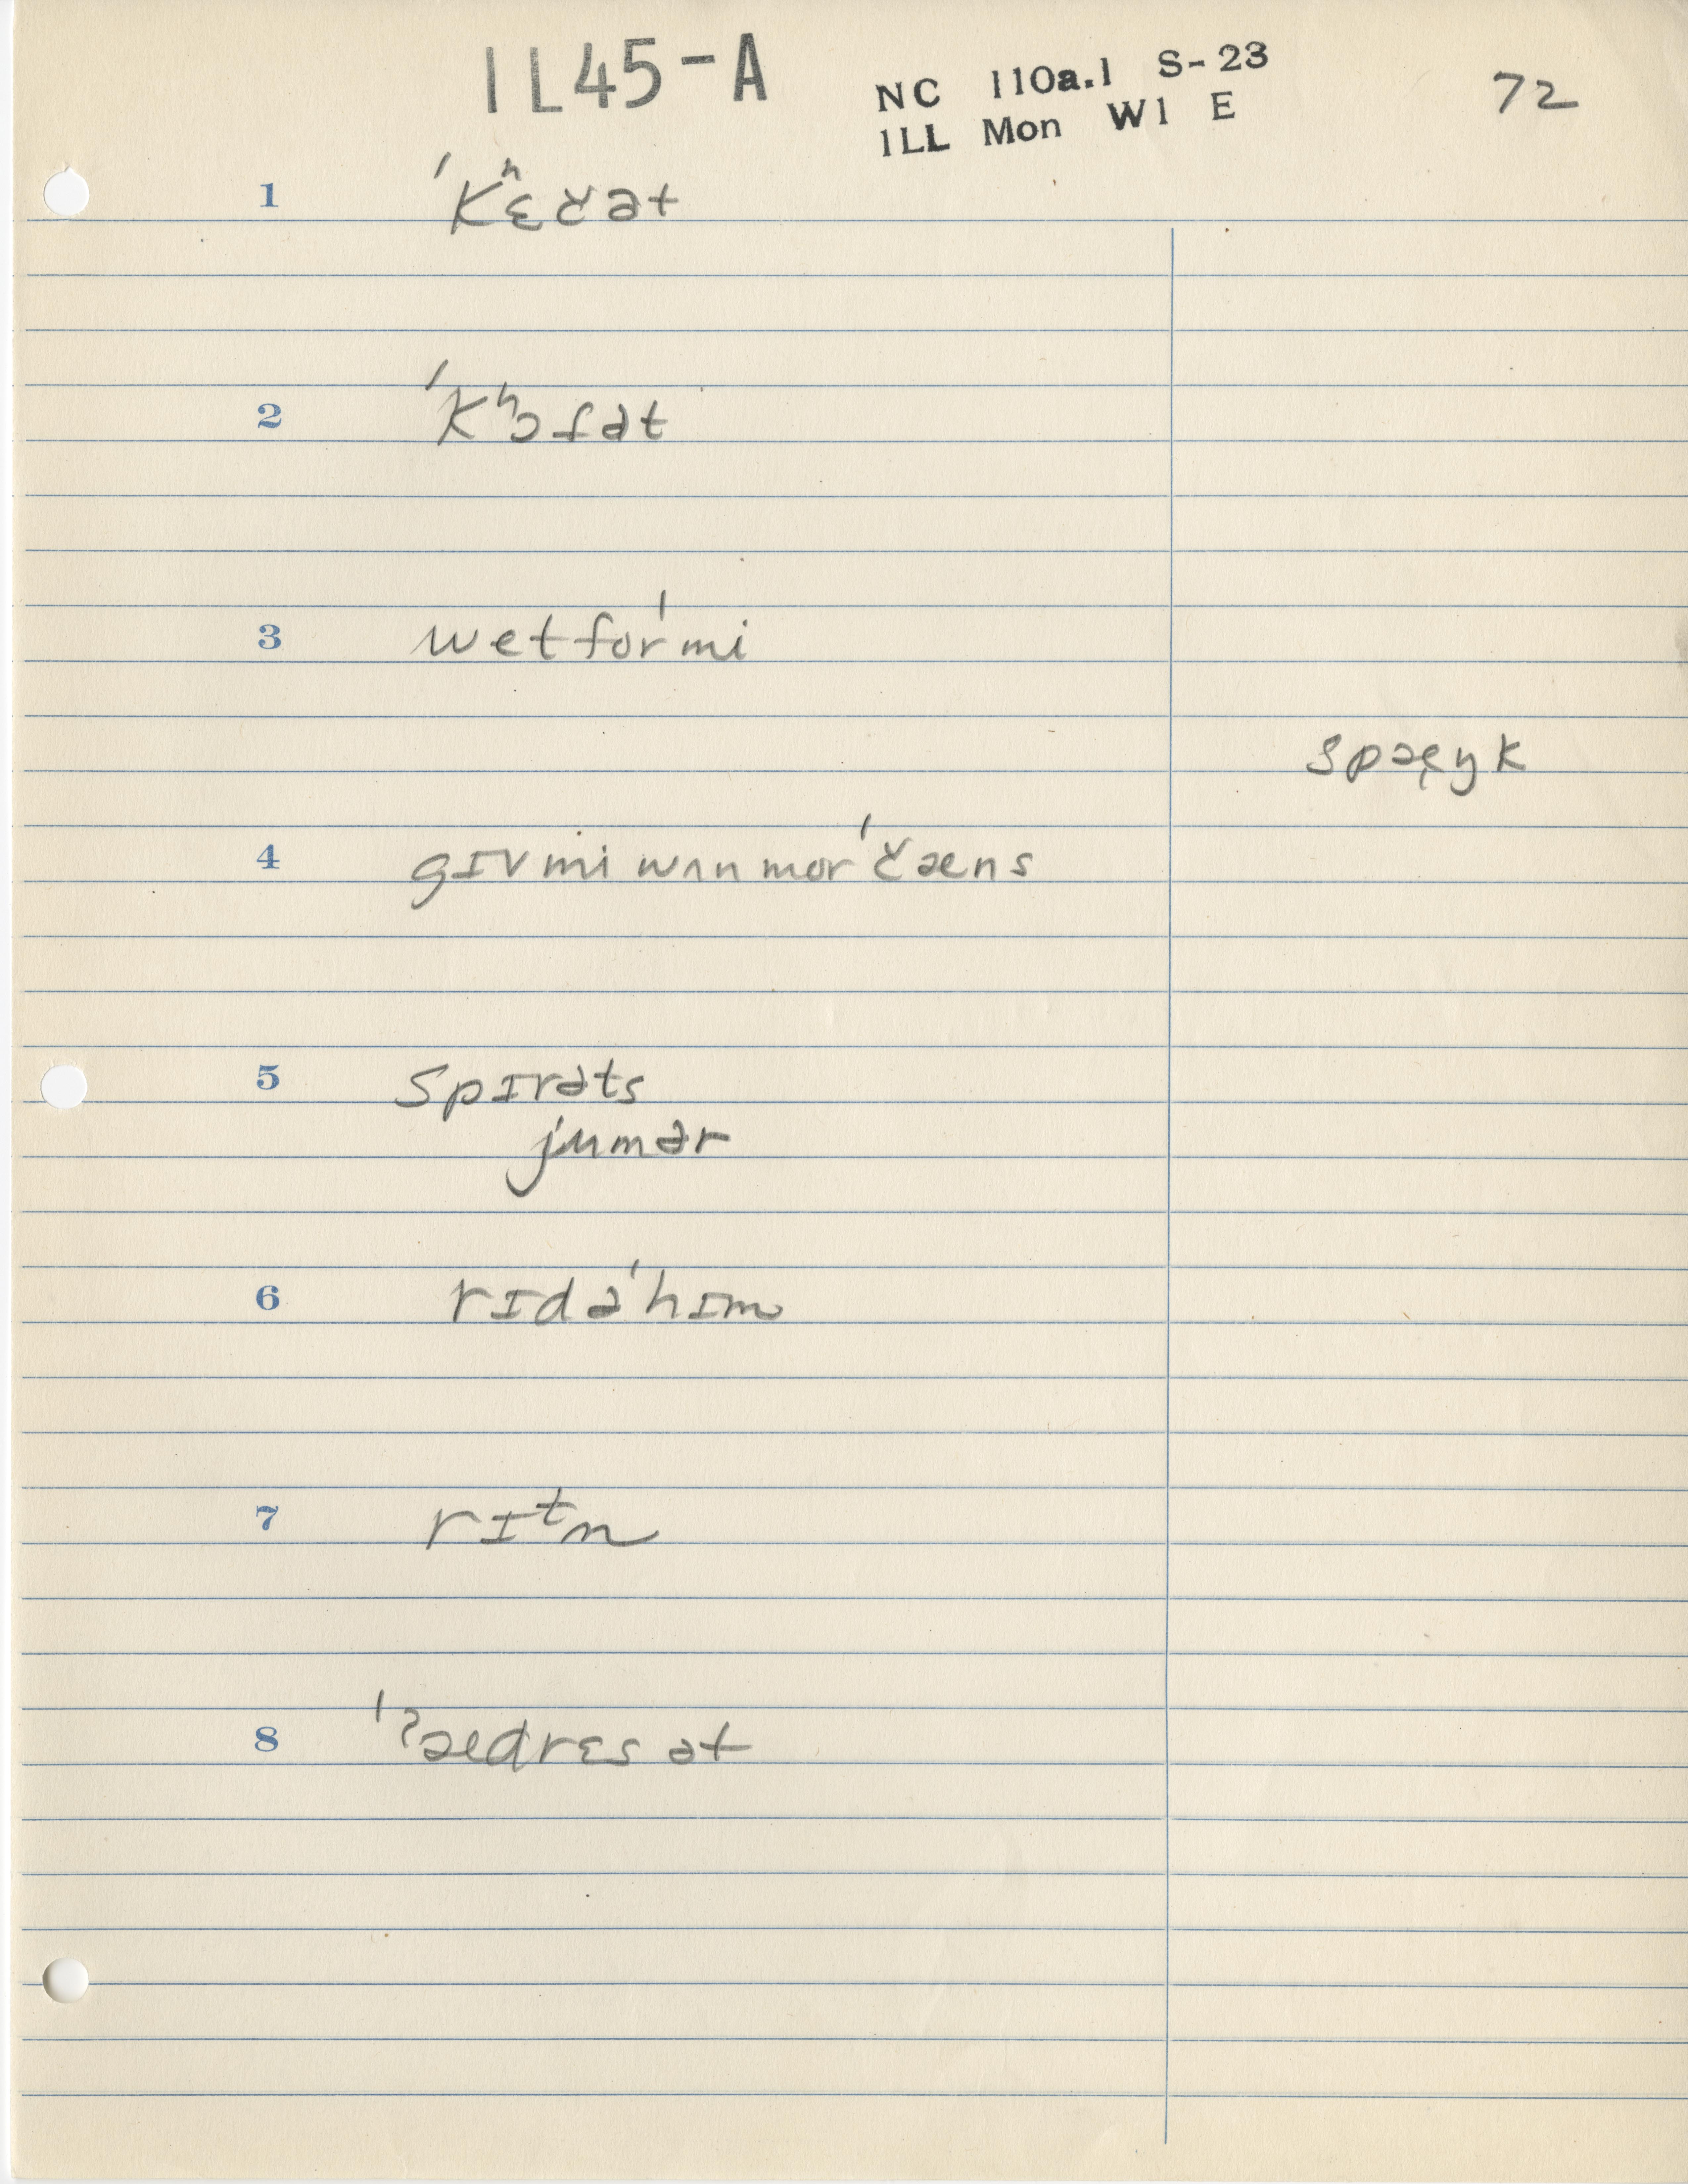 IL45-A
NC 110a.1 S-23
ILL Mon W1 E
72
1 ˈKʰɛč ət
2 ˈKʰɔf ət
3 wet forˈmi
spæɛ̨yk
4 gɪv mi wʌn mor ˈčæns
5 spɪrəts
jumər
6 rɪd əˈhɪm
7 rɪᵗn
8 ˈˀædrɛs ət